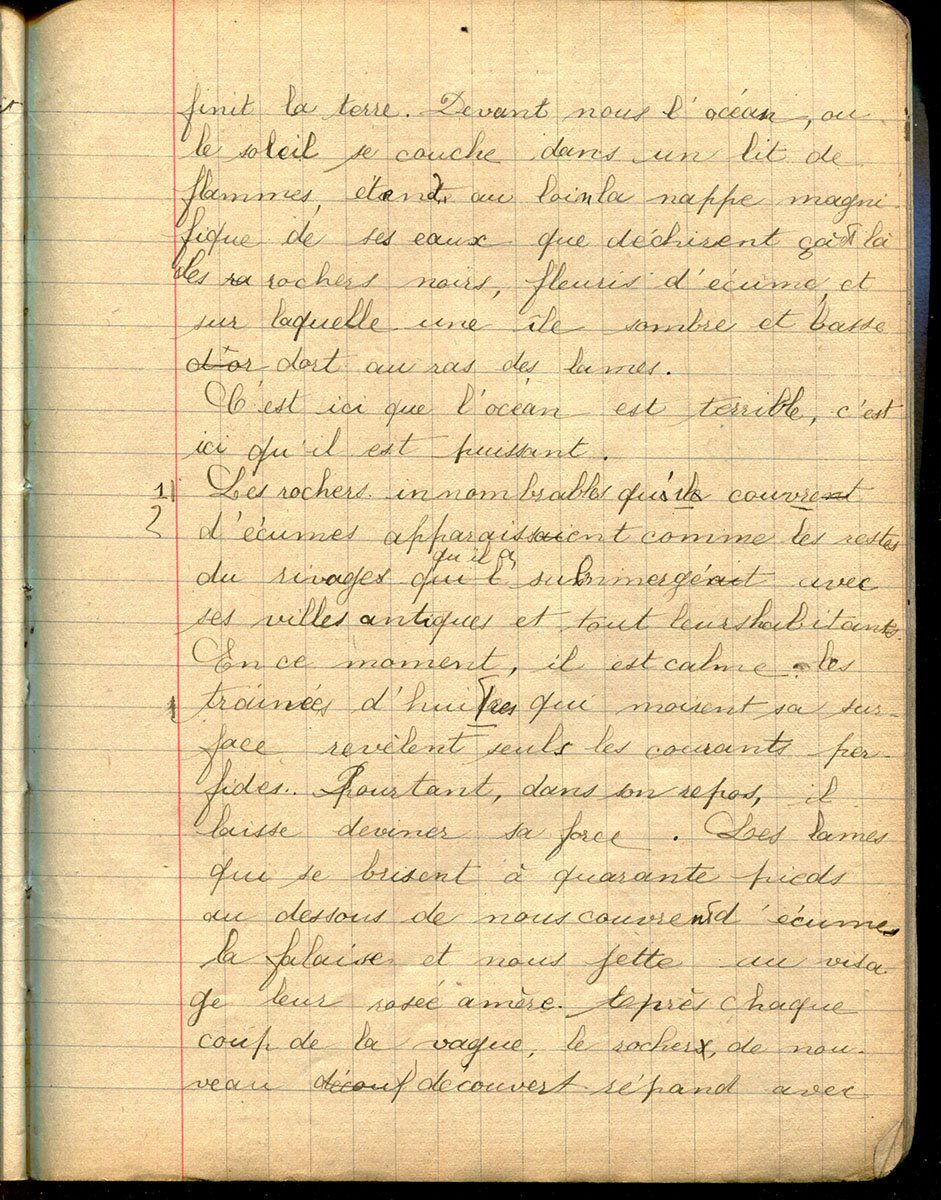 finit la terre. Devant nous l'océan, ou
le soleil se couche dans un lit de
flammes, étend au loin la nappe magni
fique de ses eaux que déchirent çà et là
des ra rochers noirs, fleuris d'écume, et
sur laquelle une île sombre et basse
d'or dort au ras des lames.
C'est ici que l'océan est terrible, c'est
ici qu'il est puissant.
1 Les rochers innombrables qu'il couvrent
2 d'écumes apparaissaient comme les restes
qu'il a
du rivages qui submergeait avec
ses villes antiques et tout leurs habitants.
En ce moment, il est calme. les
trainées d'huitres qui moirent sa sur-
face revèlent seuls les courants per-
fides.. Pourtant, dans son repos, il
laisse deviner sa force. Les lames
qui se brisent à quarante pieds
au dessous de nous couvrent d'écumes
la falaise et nous jette au visa-
ge leur rosée amère. Après chaque
coup de la vague, le rocherx, de nou-
veau découf découvert répand avec